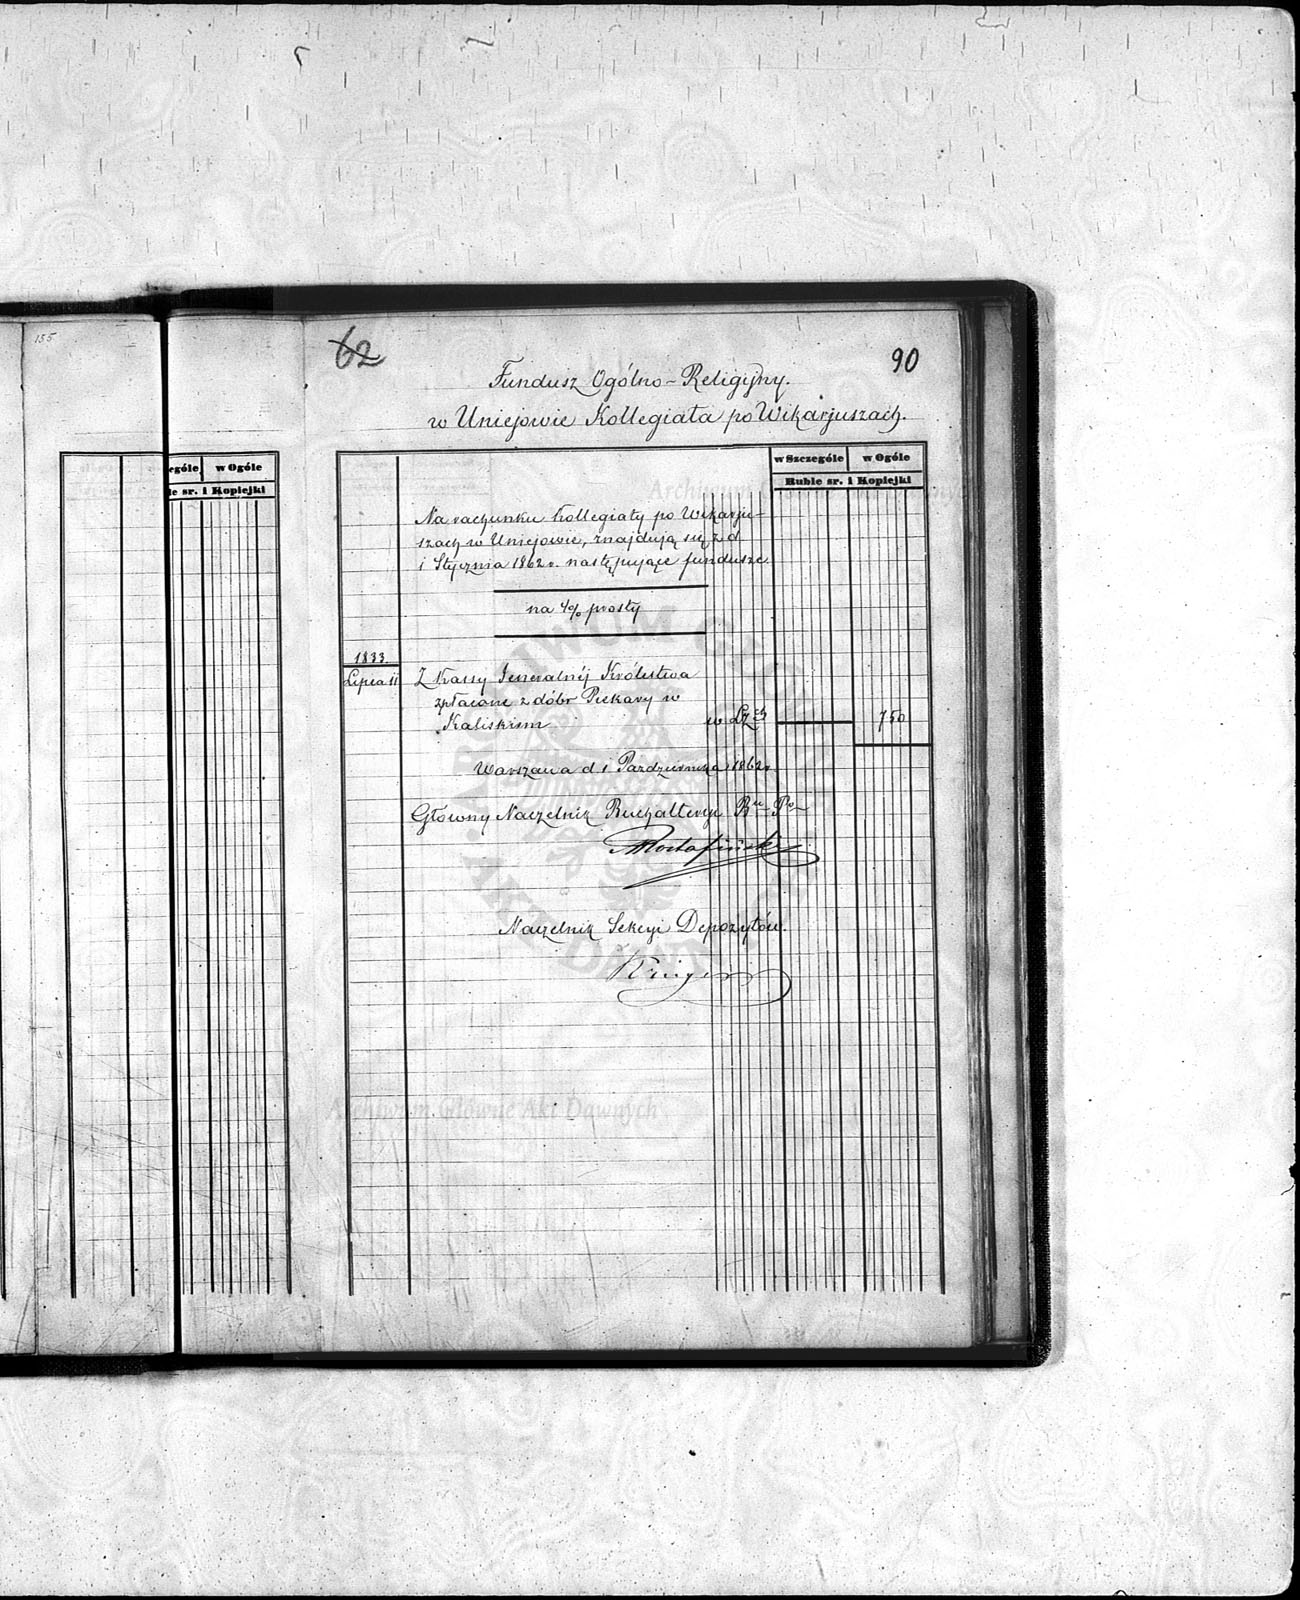 155
62
90
Fundusz Ogólno-Religijny.
w Uniejowie Kollegiata po Wikarjuszach.
w Ogóle
w Szczególe w Ogóle
Ruble sr. i Kopiejki
sr. i Kopiejki
Archiwum Główne Akt Dawnych
Na rachunku Kollegiaty po Wikarju-
szach w Uniejowie, znajdują się z d.
1 Stycznia 1862 r. następujące fundusze
na 4% prosty
1833.
Lipca 11 Z Kassy Jeneralnéj Królestwa
zpłacone z dóbr Piekary w
Kaliskiem 750
Warszawa d 1 Października 1862 r.
Główny Naczelnik Buchalteryi
Naczelnik Sekcyi Depozytów.
ARCHIWUM GŁÓWNE AKT DAWNYCH
Archiwum Główne Akt Dawnych